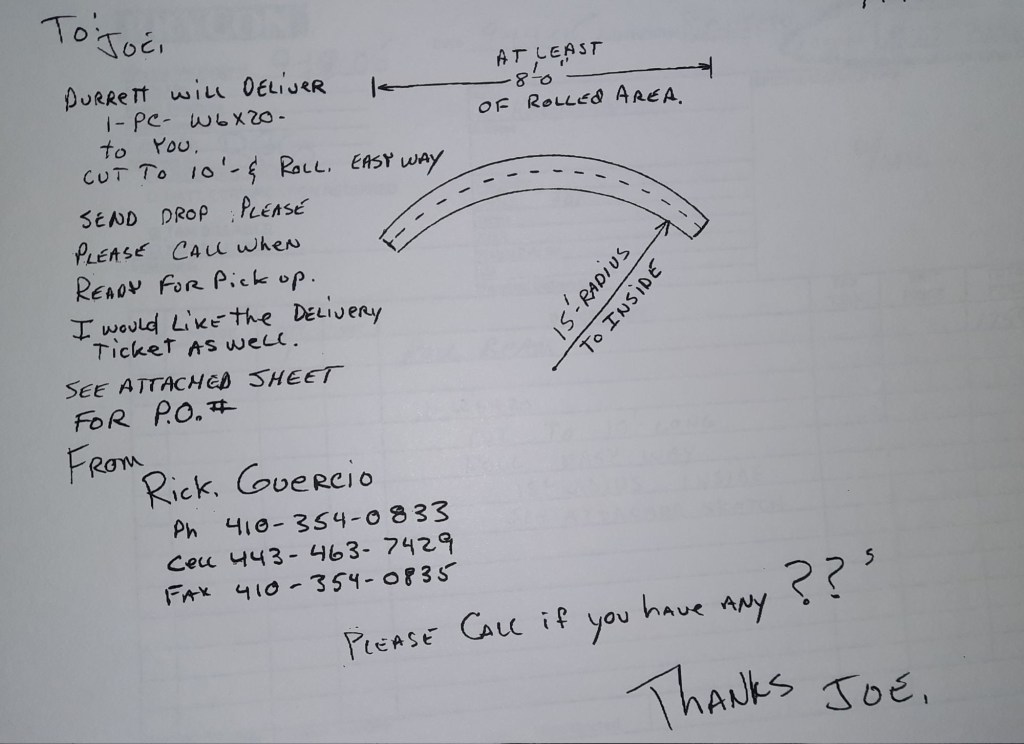 To: JOE,
DURRETT WILL DELIVER
1-PC- W6X20-
to YOU.
CUT TO 10'- & ROLL. EASY WAY
SEND DROP PLEASE
PLEASE CALL WHEN
READY FOR PICK UP.
I WOULD LIKE THE DELIVERY
TICKET AS WELL.
SEE ATTACHED SHEET
FOR P.O.#
FROM
RICK. GUERCIO
Ph 410-354-0833
CELL 443-463-7429
FAX 410-354-0835
AT LEAST
8'-0"
OF ROLLED AREA.
15'-RADIUS
TO INSIDE
PLEASE CALL if you have ANY ??'s
THANKS JOE.